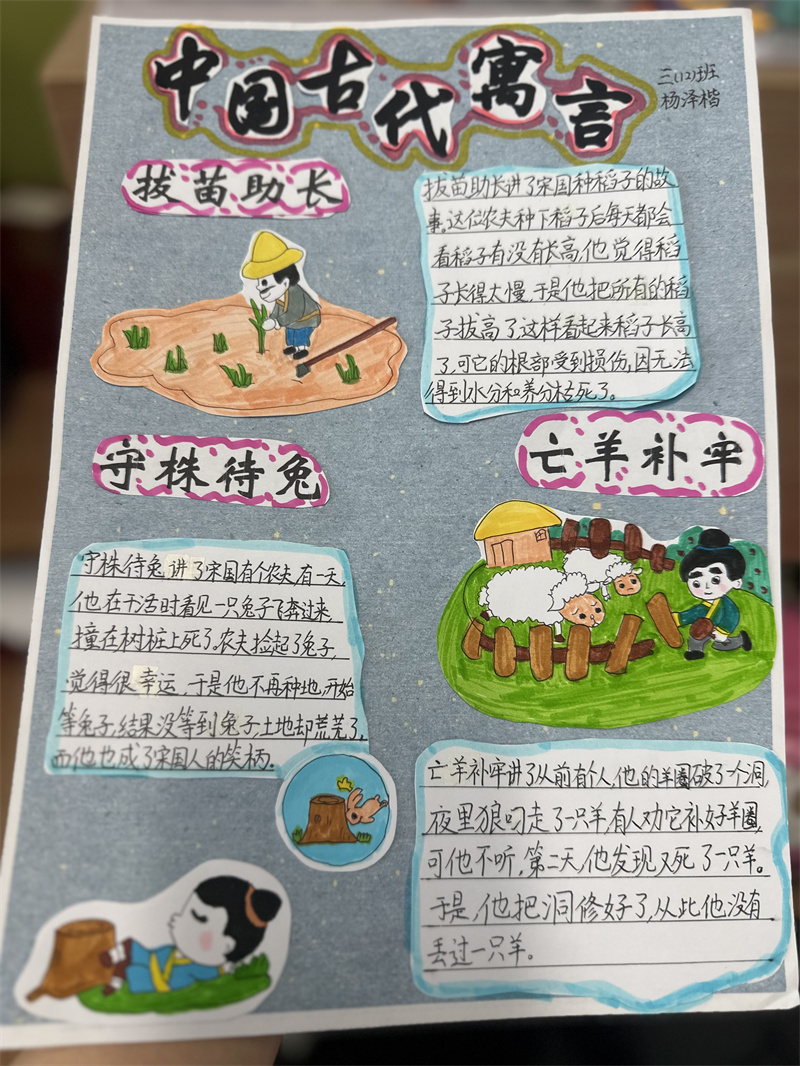 中国古代寓言
三(12)班
杨泽楷
拔苗助长
拔苗助长讲了宋国种稻子的故
事。这位农夫种下稻子后每天都会
看稻子有没有长高,他觉得稻
子长得太慢,于是他把所有的稻
子拔高了这样看起来稻子长高
了,可它的根部受到损伤,因无法
得到水分和养分枯死了。
守株待兔
守株待兔讲了宋国有个农夫,有一天,
他在干活时看见一只兔子飞奔过来,
撞在树桩上死了。农夫捡起了兔子,
觉得很幸运,于是他不再种地,开始
等兔子,结果没等到兔子,土地却荒芜了,
而他也成了宋国人的笑柄。
亡羊补牢
亡羊补牢讲了从前有个人,他的羊圈破了一个洞,
夜里狼叼走了一只羊,有人劝它补好羊圈,
可他不听,第二天,他发现又死了一只羊。
于是,他把洞修好了,从此他没有
丢过一只羊。